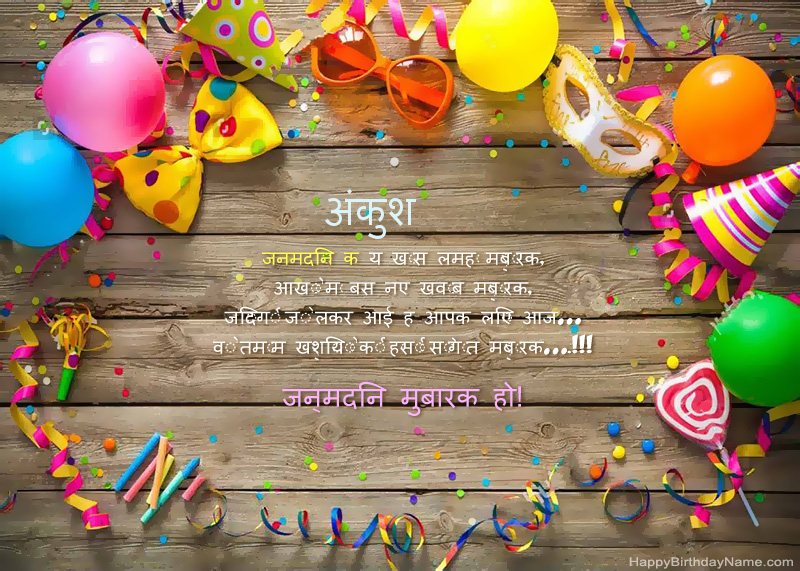 अंकुश
जनमदिन क य खास लमह मबारक,
आखो म बस नए खवाब मबारक,
जदिगी जो लेकर आई ह आपक लिए आज...
वो तमाम खशयिो की हसी सौगात मबारक...!!!
जन्मदिन मुबारक हो!
HappyBirthdayName.com